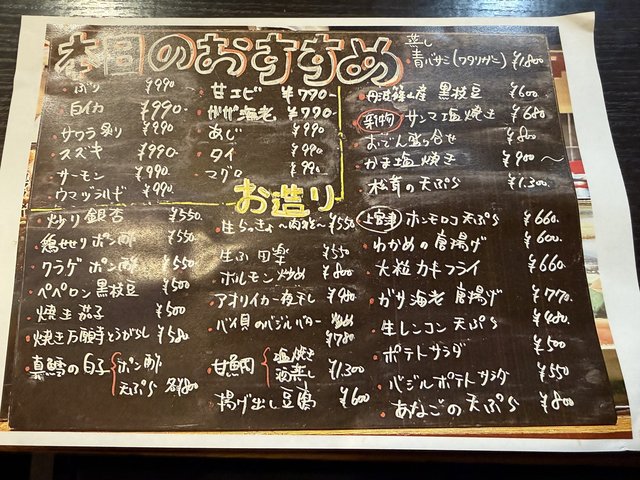 本日のおすすめ
・ぶり ¥990
・白イカ ¥990-
・サワラ炙り ¥990-
・スズキ ¥990-
・サーモン ¥990-
・ウマヅラハギ ¥990
・甘エビ ¥790-
・ガサ海老 ¥790-
・あじ ¥990-
・タイ ¥990-
・マグロ ¥990-
お造り
・炒り銀杏 ¥550-
・鶏せせりポン酢 ¥550-
・クラゲポン酢 ¥550
・ペペロン黒枝豆 ¥500
・焼き茄子 ¥500
・焼き万願寺とうがらし ¥580
・真鱈の白子 ポン酢 天ぷら 各¥800
・生らっきょ〜肉味〜 ¥550
・生ふ田楽 ¥550
・ホルモン炒め ¥800
・アオリイカ一夜干し ¥980
・バイ貝のバジルバター炒め ¥780
・甘鯛 塩焼き 酒蒸し ¥1,300
・揚げ出し豆腐 ¥600
蒸し
・青バサミ(ワタリガニ) ¥1,800
・丹波篠山産 黒枝豆 ¥600
・新物 サンマ塩焼き ¥680
・おでん盛り合せ ¥800
・かま塩焼き ¥900〜
・松茸の天ぷら ¥1,300
・上宮津 ホンモロコ天ぷら ¥660
・わかめの唐揚げ ¥600
・大粒カキフライ ¥660
・ガサ海老 唐揚げ ¥770
・生レンコン天ぷら ¥480
・ポテトサラダ ¥500
・バジルポテトサラダ ¥550
・あなごの天ぷら ¥800